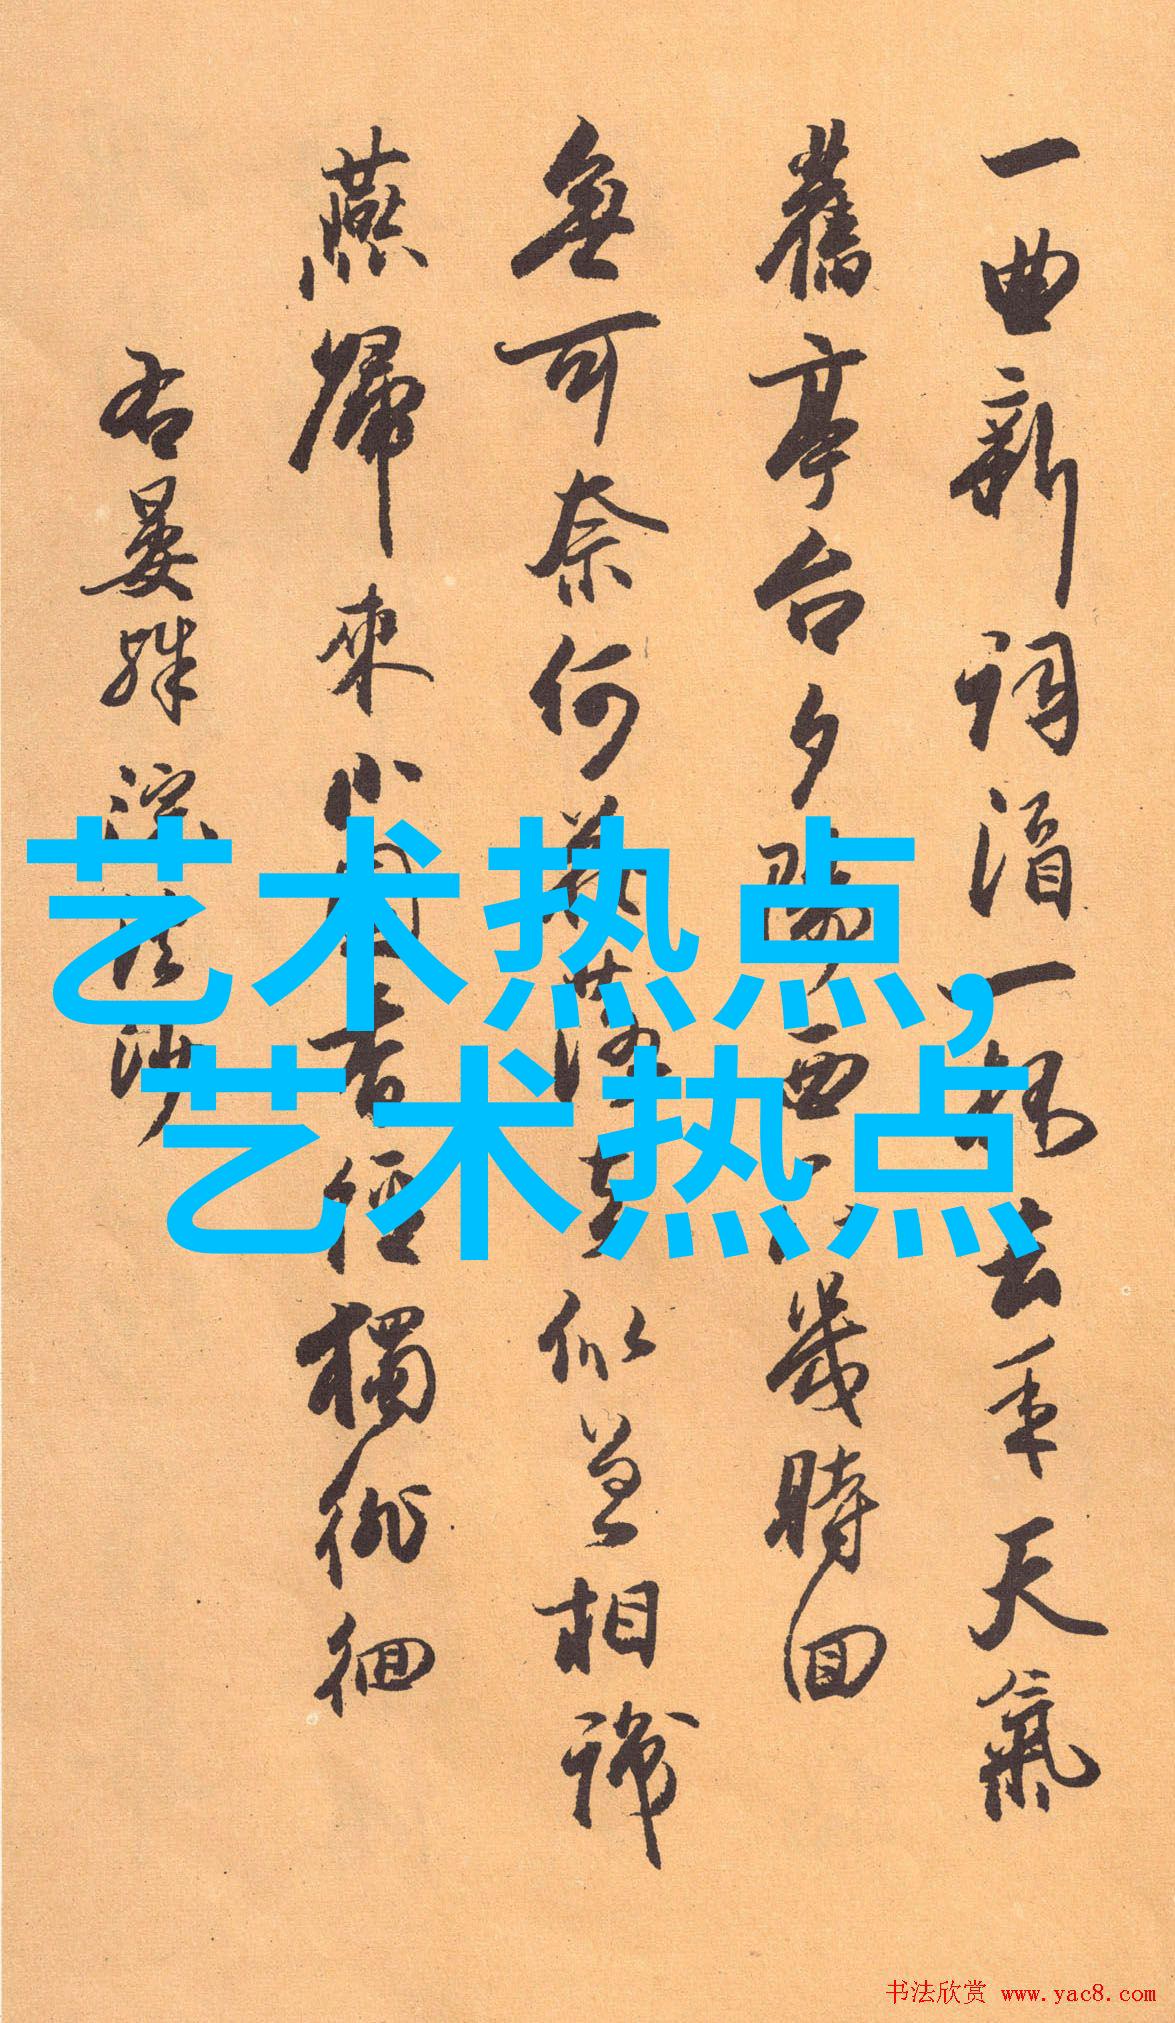 一曲新詞酒一杯去年天氣
舊亭台夕陽西下幾時回
無可奈何花落去似曾相識
燕歸來小園香徑獨徘徊
右晏殊浣溪沙
艺术热点,
艺术热点
书法欣赏 www.yac8.com